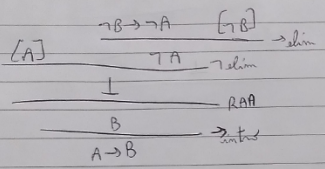 ¬B→¬A [¬B]
→elim
[A] ¬A
¬elim
⊥
RAA
B
→intro
A→B